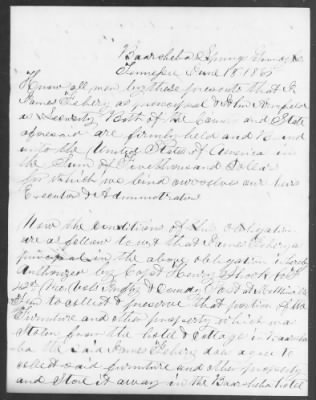 Beersheba Springs Grundy Co
Tennessee June 18 186
Know all men by these presents that I
James as principal & John Armfield
as Security Both of the County and State
aforesaid are firmly held and Bound
unto the United States of America in
the Sum of Five thousand Dollars
for which we bind ourselves our heirs
Executors & Administrators
Now the conditions of this obligation
are as follows to wit that James
principal in the above obligation is hereby
Authorized by Capt Henry
Comdg Post at McMinnville
Tenn to collect & preserve that portion of the
Furniture and other property which was
Stolen from the hotel & Cottages in Beershe
ba the said James does agree to
collect said furniture and other property
and Store it away in the Beersheba hotel